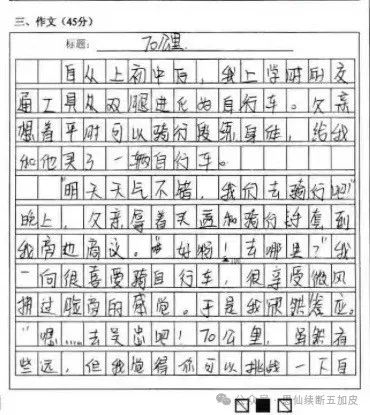 三、作文（45分）
标题：70公里
自从上初中后，我上学时的交
通工具从双腿进化为自行车。父亲
想着平时可以骑行锻练身体，给我
和他买了一辆自行车。
“明天天气不错，我们去骑行吧”
晚上，父亲拿着头盔和骑行到
我旁边商议。“好啊！去哪里？”我
一向很喜爱骑自行车，很享受微风
拂过脸旁的感觉。于是我欣然答应。
“嗯……去吴忠吧！70公里，虽然有
些远，但我觉得你可以挑战一下自
思仙续断五加皮